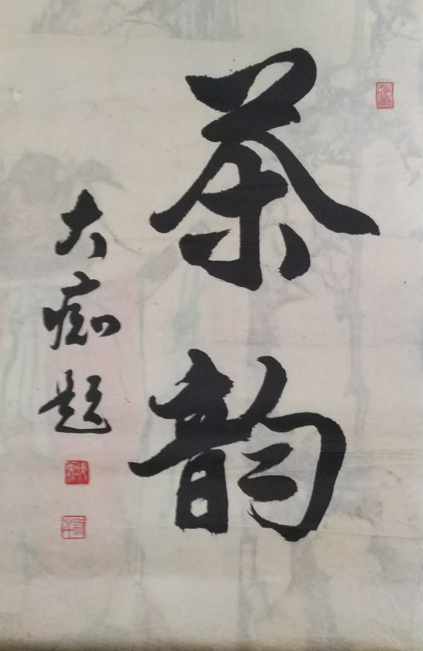 茶韵
大痴题